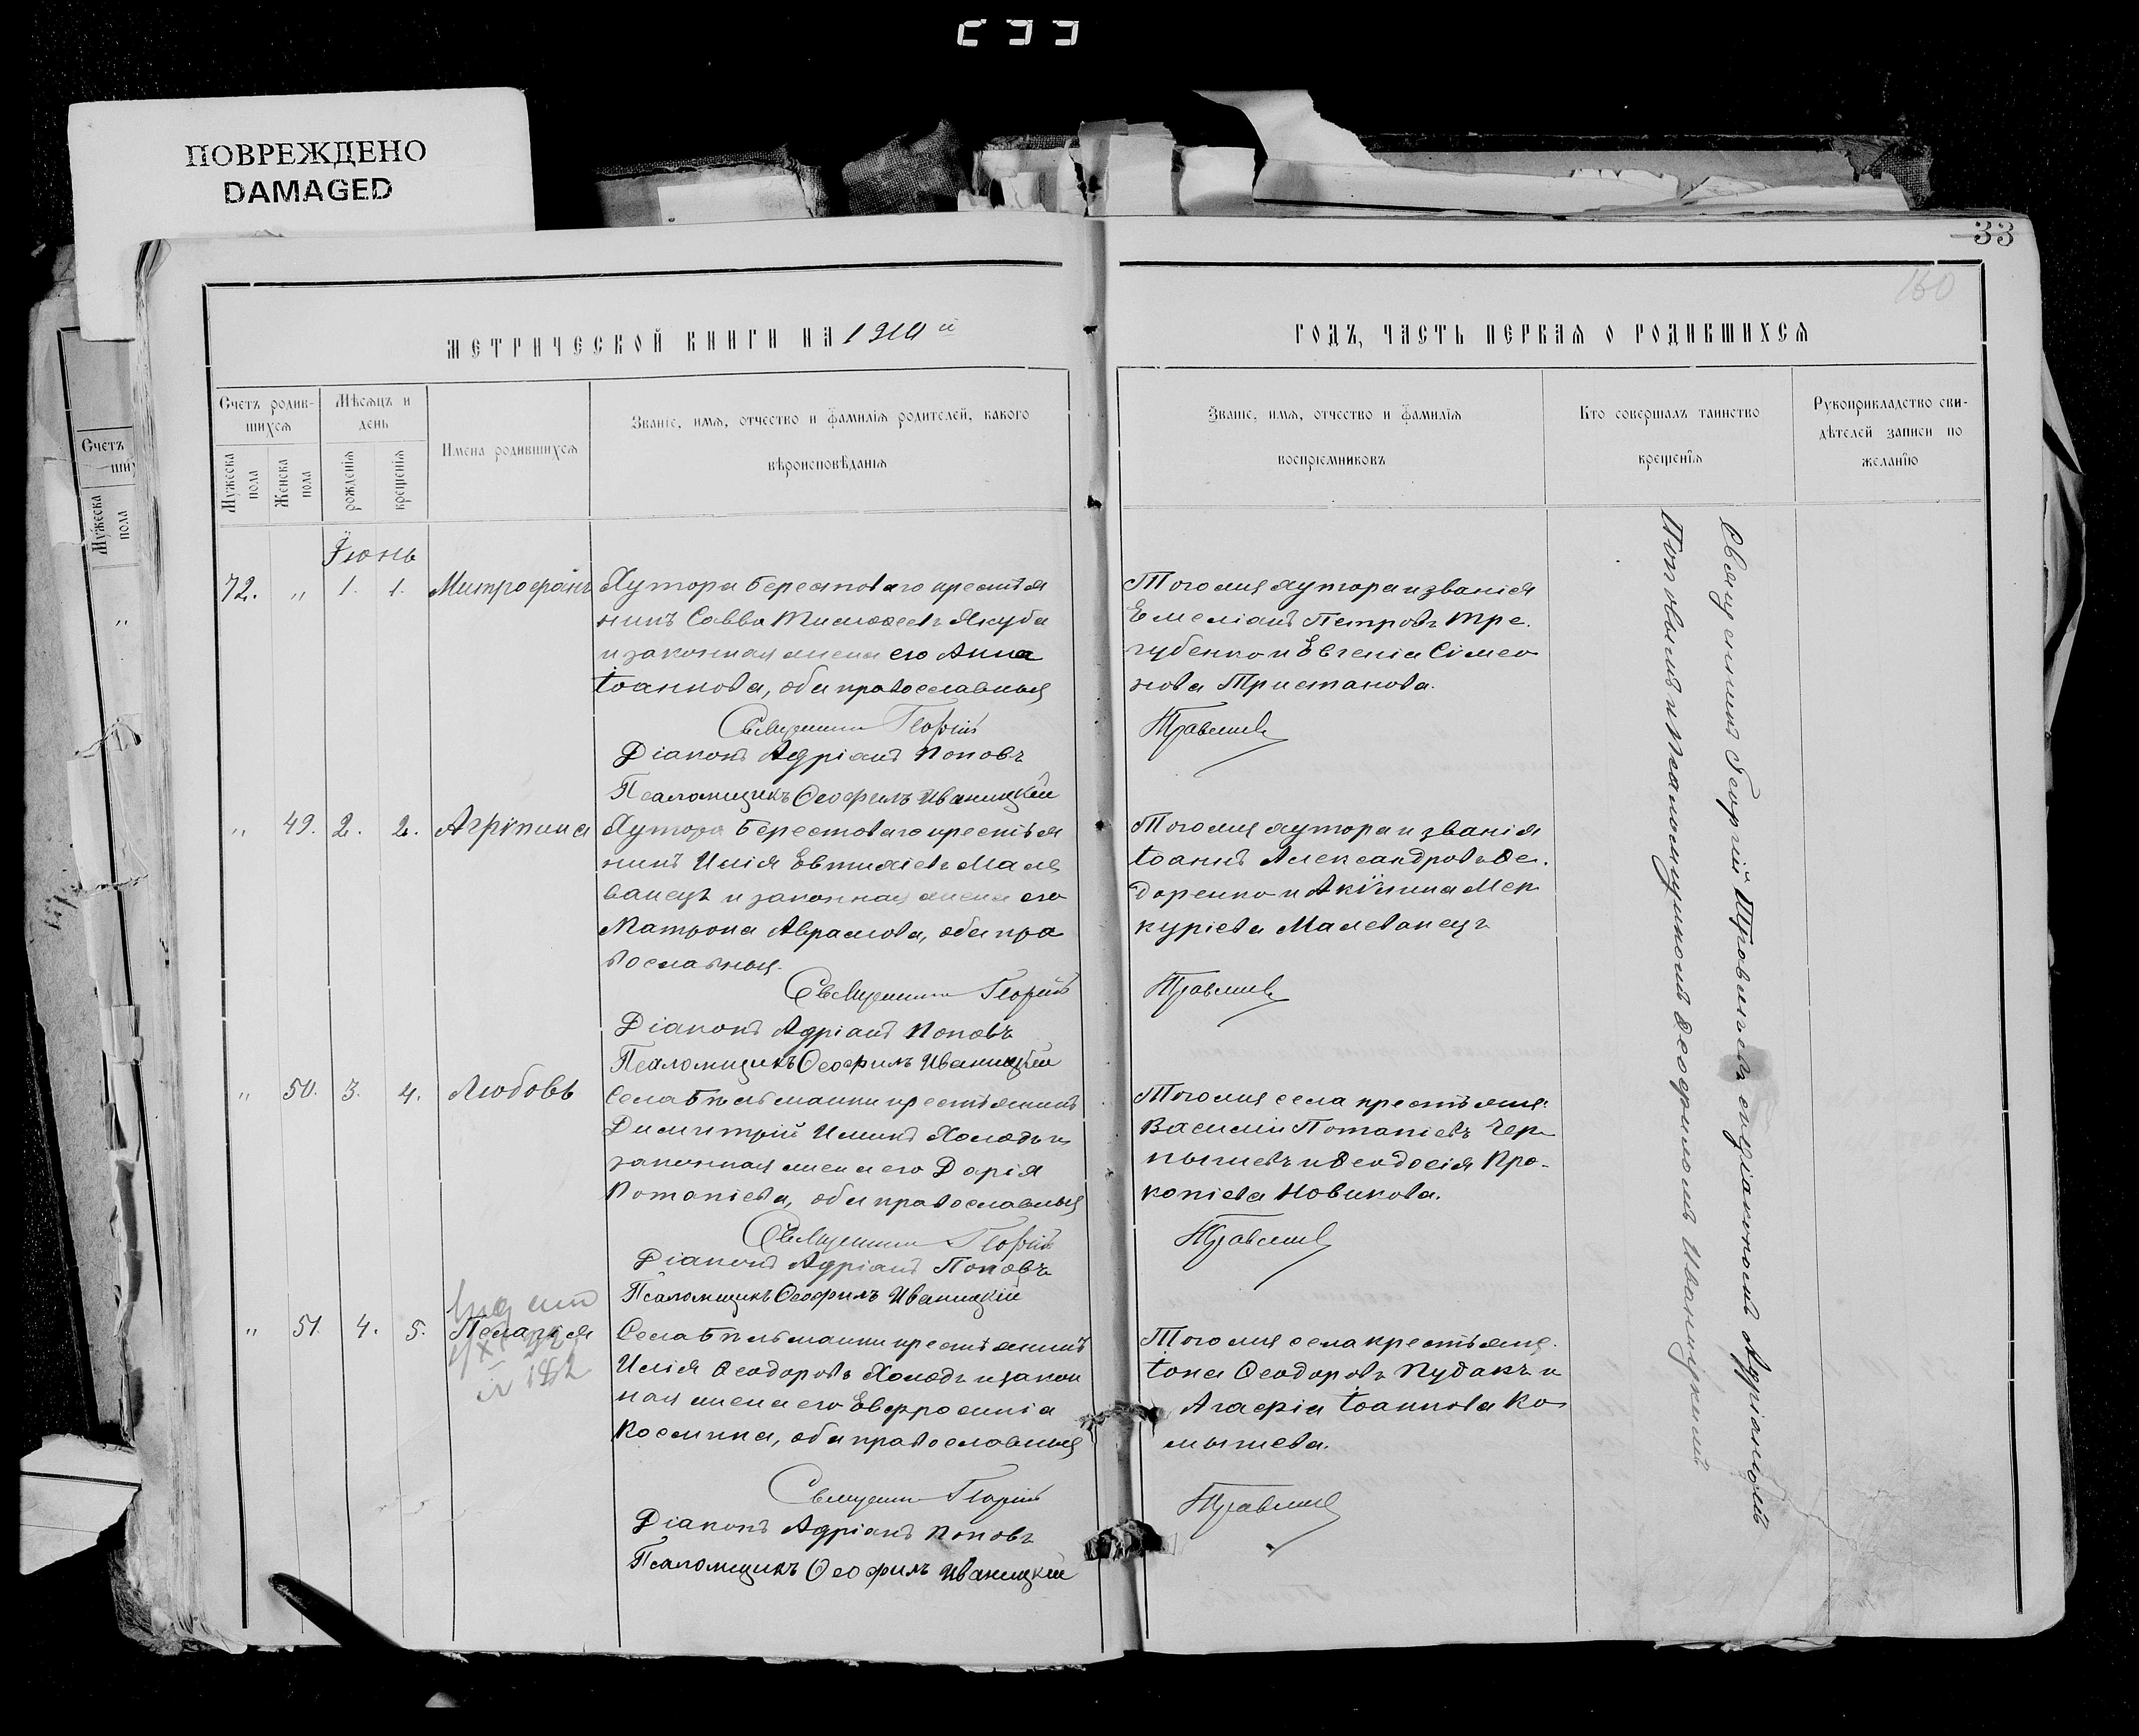 ПОВРЕЖДЕНО
DAMAGED
33
160
МЕТРИЧЕСКОЙ КНИГИ НА 1910й
ГОДЪ, ЧАСТЬ ПЕРВАЯ О РОДИВШИХСЯ
Счетъ родив-
шихся
Мужеска пола
Женска пола
Мѣсяцъ и
день
рожденія
крещенія
Имена родившихся
Званіе, имя, отчество и фамилія родителей, какого
вѣроисповѣданія
Званіе, имя, отчество и фамилія
воспріемниковъ
Кто совершалъ таинство
крещенія
Рукоприкладство сви-
дѣтелей записи по
желанію
Счетъ
ших
Мужеска
пола
Іюнь
72. " 1. 1. Митрофанъ
Хутора Берестоваго крестья
нинъ Савва Тимофеевъ Якуба
и законная жена его Анна
Іоаннова, оба православныя
Священникъ Георгій
Діаконъ Адріанъ Поповъ
Псаломщикъ Ѳеофилъ Иваницкій
Того же хутора и званія
Емеліанъ Петровъ Тре
губенко и Евгенія Сімео
нова Тристанова.
" 49. 2. 2. Агрѵпина
Хутора Берестоваго крестья
нинъ Илія Евтихіевъ Мале
ванецъ и законная жена его
Матрона Аврамова, оба пра
вославныя.
Священникъ Георгій
Діаконъ Адріанъ Поповъ
Псаломщикъ Ѳеофилъ Иваницкій
Того же хутора и званія
Іоаннъ Александровъ Ѳе
доренко и Акѵлина Мер
куріева Малеванецъ
" 50. 3. 4. Любовь
Села Бѣльманки крестьянинъ
Димитрій Илiинъ Холодъ и
законная жена его Дарія
Потапіева, оба православныя
Священникъ Георгій
Діаконъ Адріанъ Поповъ
Псаломщикъ Ѳеофилъ Иваницкій
Того же села крестьяне:
Василій Потапіевъ Чер
нышевъ и Ѳеодосія Про-
копіева Новикова.
" 51. 4. 5. Пелагія
Села Бѣльманки крестьянинъ
Илія Ѳеодоровъ Холодъ и закон
ная жена его Евфросинія
Космина, оба православныя
Священникъ Георгій
Діаконъ Адріанъ Поповъ
Псаломщикъ Ѳеофилъ Иваницкій
Того же села крестьяне.
Іона Ѳеодоровъ Пудакъ и
Агафія Іоаннова Ко
мышева.
Священникъ Георгій съ діакономъ Адріаномъ
Поповымъ и псаломщикомъ Ѳеофиломъ Иваницкимъ